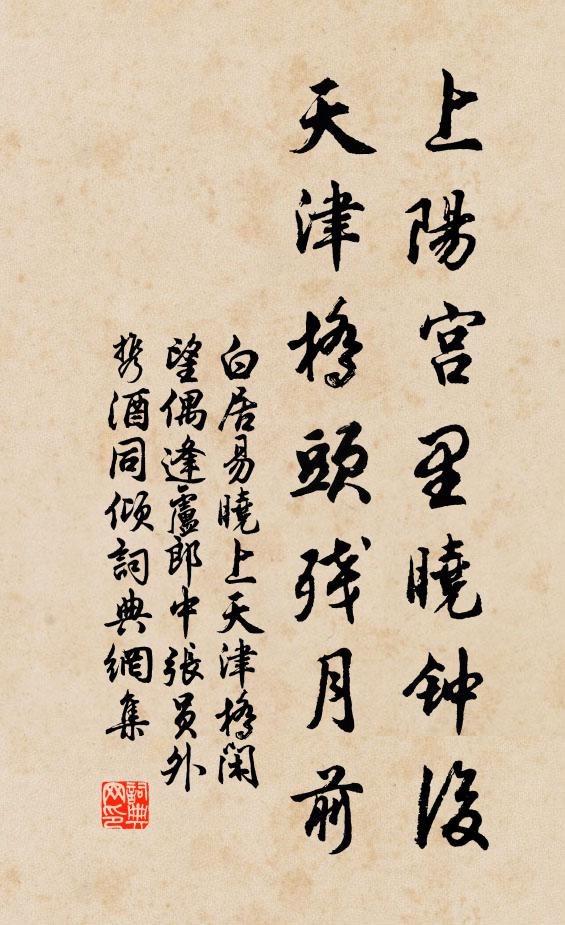 上陽宮里曉钟後
天津橋頭残月前
白居易曉上天津橋闲
望偶逢盧郎中張员外
携酒同倾詞典網集
詞典
网印